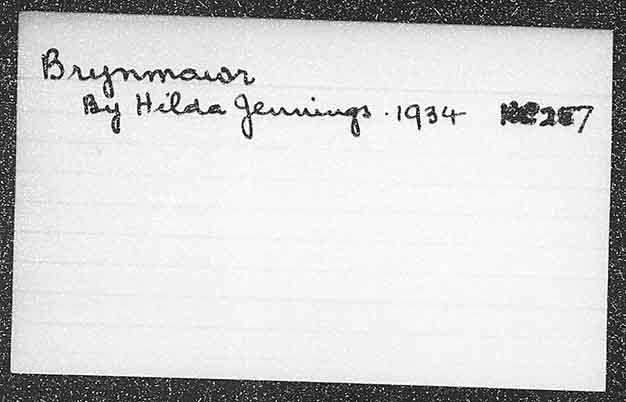 Brynmawr
By Hilda Jennings. 1934